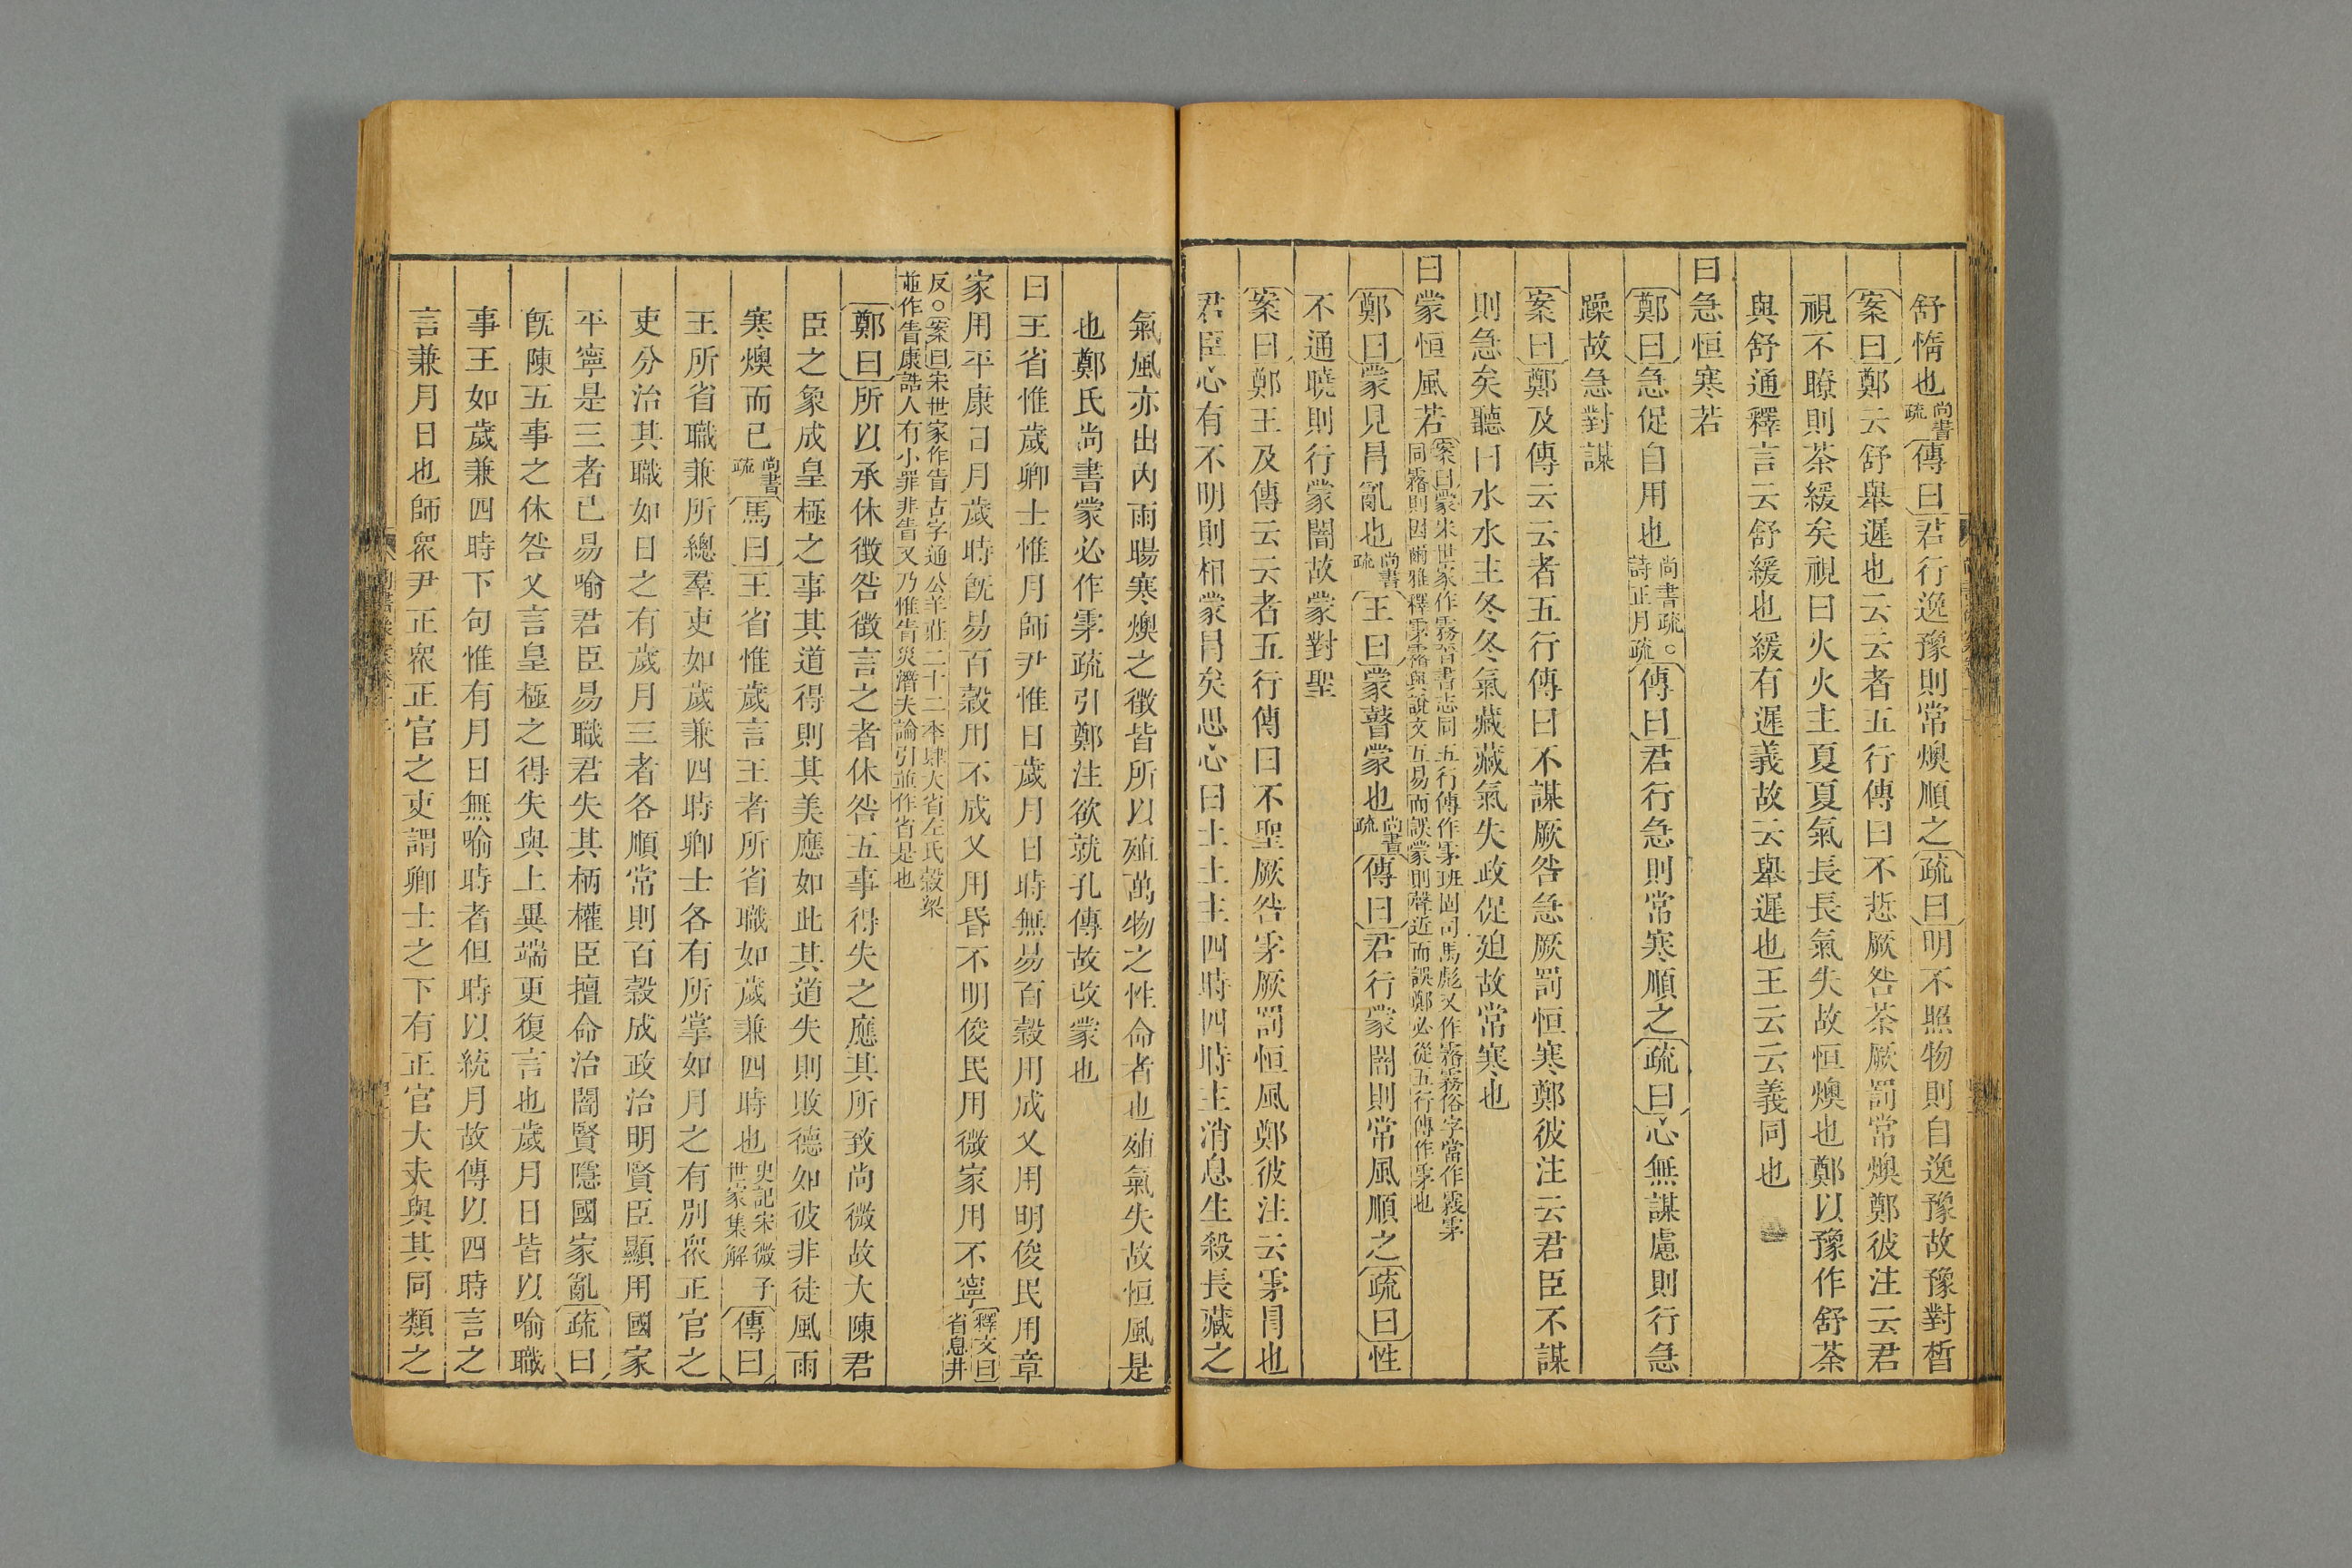 舒惰也尚書疏傳曰君行逸豫則常燠順之疏曰明不照物則自逸豫故豫對晳
案曰鄭云舒舉遲也云云者五行傳曰不悊厥咎荼厥罰常燠鄭彼注云君
視不瞭則荼緩矣視曰火火主夏夏氣長長氣失故恒燠也鄭以豫作舒荼
與舒通釋言云舒緩也緩有遲義故云舉遲也王云云義同也
曰急恒寒若
鄭曰急促自用也尚書疏○詩正月疏傳曰君行急則常寒順之疏曰心無謀慮則行急
躁故急對謀
案曰鄭及傳云云者五行傳曰不謀厥咎急厥罰恒寒鄭彼注云君臣不謀
則急矣聽曰水水主冬冬氣藏藏氣失政促廹故常寒也
曰蒙恒風若案曰蒙宋世家作霧晉書志同五行傳作雺班固司馬彪又作霿霧俗字當作霿雺同霿則因爾雅釋雺霿與說文互易而誤蒙則聲近而誤鄭必從五行傳作雺也
鄭曰蒙見冐亂也尚書疏王曰蒙瞽蒙也尚書疏傳曰君行蒙闇則常風順之疏曰性
不通曉則行蒙闇故蒙對聖
案曰鄭王及傳云云者五行傳曰不聖厥咎雺厥罰恒風鄭彼注云雺冐也
君臣心有不明則相蒙冐矣思心曰土土主四時四時主消息生殺長藏之
氣風亦出內雨暘寒燠之徵皆所以殖萬物之性命者也殖氣失故恒風是
也鄭氏尚書蒙必作雺疏引鄭注欲就孔傳故改蒙也
曰王省惟歲卿士惟月師尹惟日歲月日時無易百穀用成乂用明俊民用章
家用平康日月歲時旣易百穀用不成乂用昏不明俊民用微家用不寧釋文曰省息井
反○案曰宋世家作眚古字通公羊莊二十二本肆大省左氏穀梁並作眚康誥人有小罪非眚又乃惟眚災潛夫論引並作省是也
鄭曰所以承休徵咎徵言之者休咎五事得失之應其所致尚微故大陳君
臣之象成皇極之事其道得則其美應如此其道失則敗德如彼非徒風雨
寒燠而已尚書疏馬曰王省惟歲言王者所省職如歲兼四時也史記宋微子世家集解傳曰
王所省職兼所總羣吏如歲兼四時卿士各有所掌如月之有別衆正官之
吏分治其職如日之有歲月三者各順常則百穀成政治明賢臣顯用國家
平寧是三者已易喻君臣易職君失其柄權臣擅命治闇賢隱國家亂疏曰
旣陳五事之休咎又言皇極之得失與上異端更復言也歲月日皆以喻職
事王如歲兼四時下句惟有月日無喻時者但時以統月故傳以四時言之
言兼月日也師衆尹正衆正官之吏謂卿士之下有正官大夫與其同類之